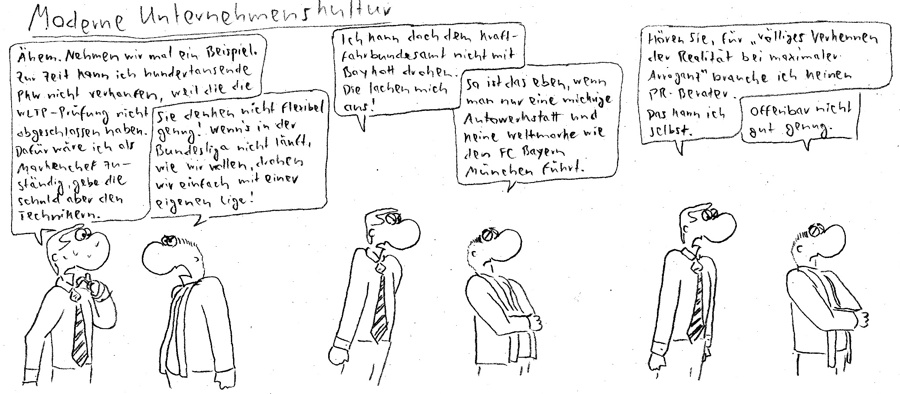 Moderne Unternehmenskultur
Ähem. Nehmen wir mal ein Beispiel.
Zur Zeit kann ich hunderttausende
PKW nicht verkaufen, weil die die
WLTP-Prüfung nicht
abgeschlossen haben.
Dafür wäre ich als
Markenchef zu-
ständig, gebe die
Schuld aber den
Technikern.
Sie denken nicht flexibel
genug! Wenn's in der
Bundesliga nicht läuft,
wie wir wollen, drohen
wir einfach mit einer
eigenen Liga!
Ich kann doch dem Kraft-
fahrbundesamt nicht mit
Boykott drohen.
Die lachen mich
aus!
So ist das eben, wenn
man nur eine mickrige
Autowerkstatt und
keine Weltmarke wie
den FC Bayern
München führt.
Hören Sie, für „völliges Verkennen
der Realität bei maximaler
Arroganz" brauche ich keinen
PR-Berater.
Das kann ich
selbst.
Offenbar nicht
gut genug.